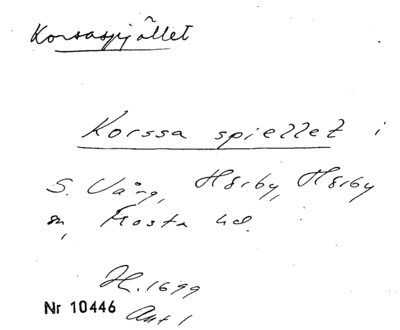 Korsaspjället
Korssa spiellet i
S. Vång, Hörby, Hörby
sn, Frosta hd.
H. 1699
Nr 10446 Akt 1